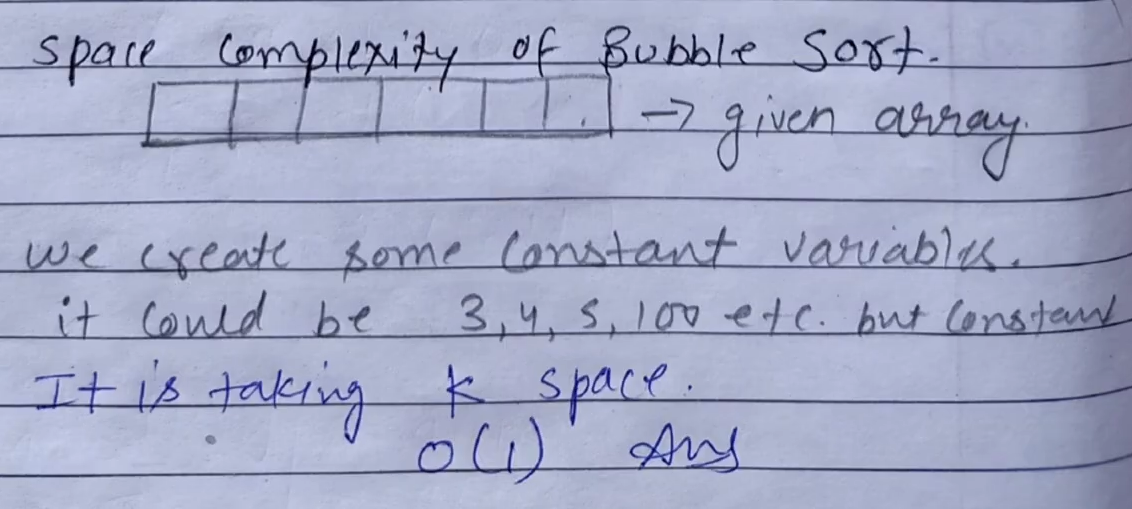 space complexity of Bubble Sort.
→ given array.
we create some constant variables.
it could be 3, 4, 5, 100 etc. but constant
It is taking k space.
O(1) Ans